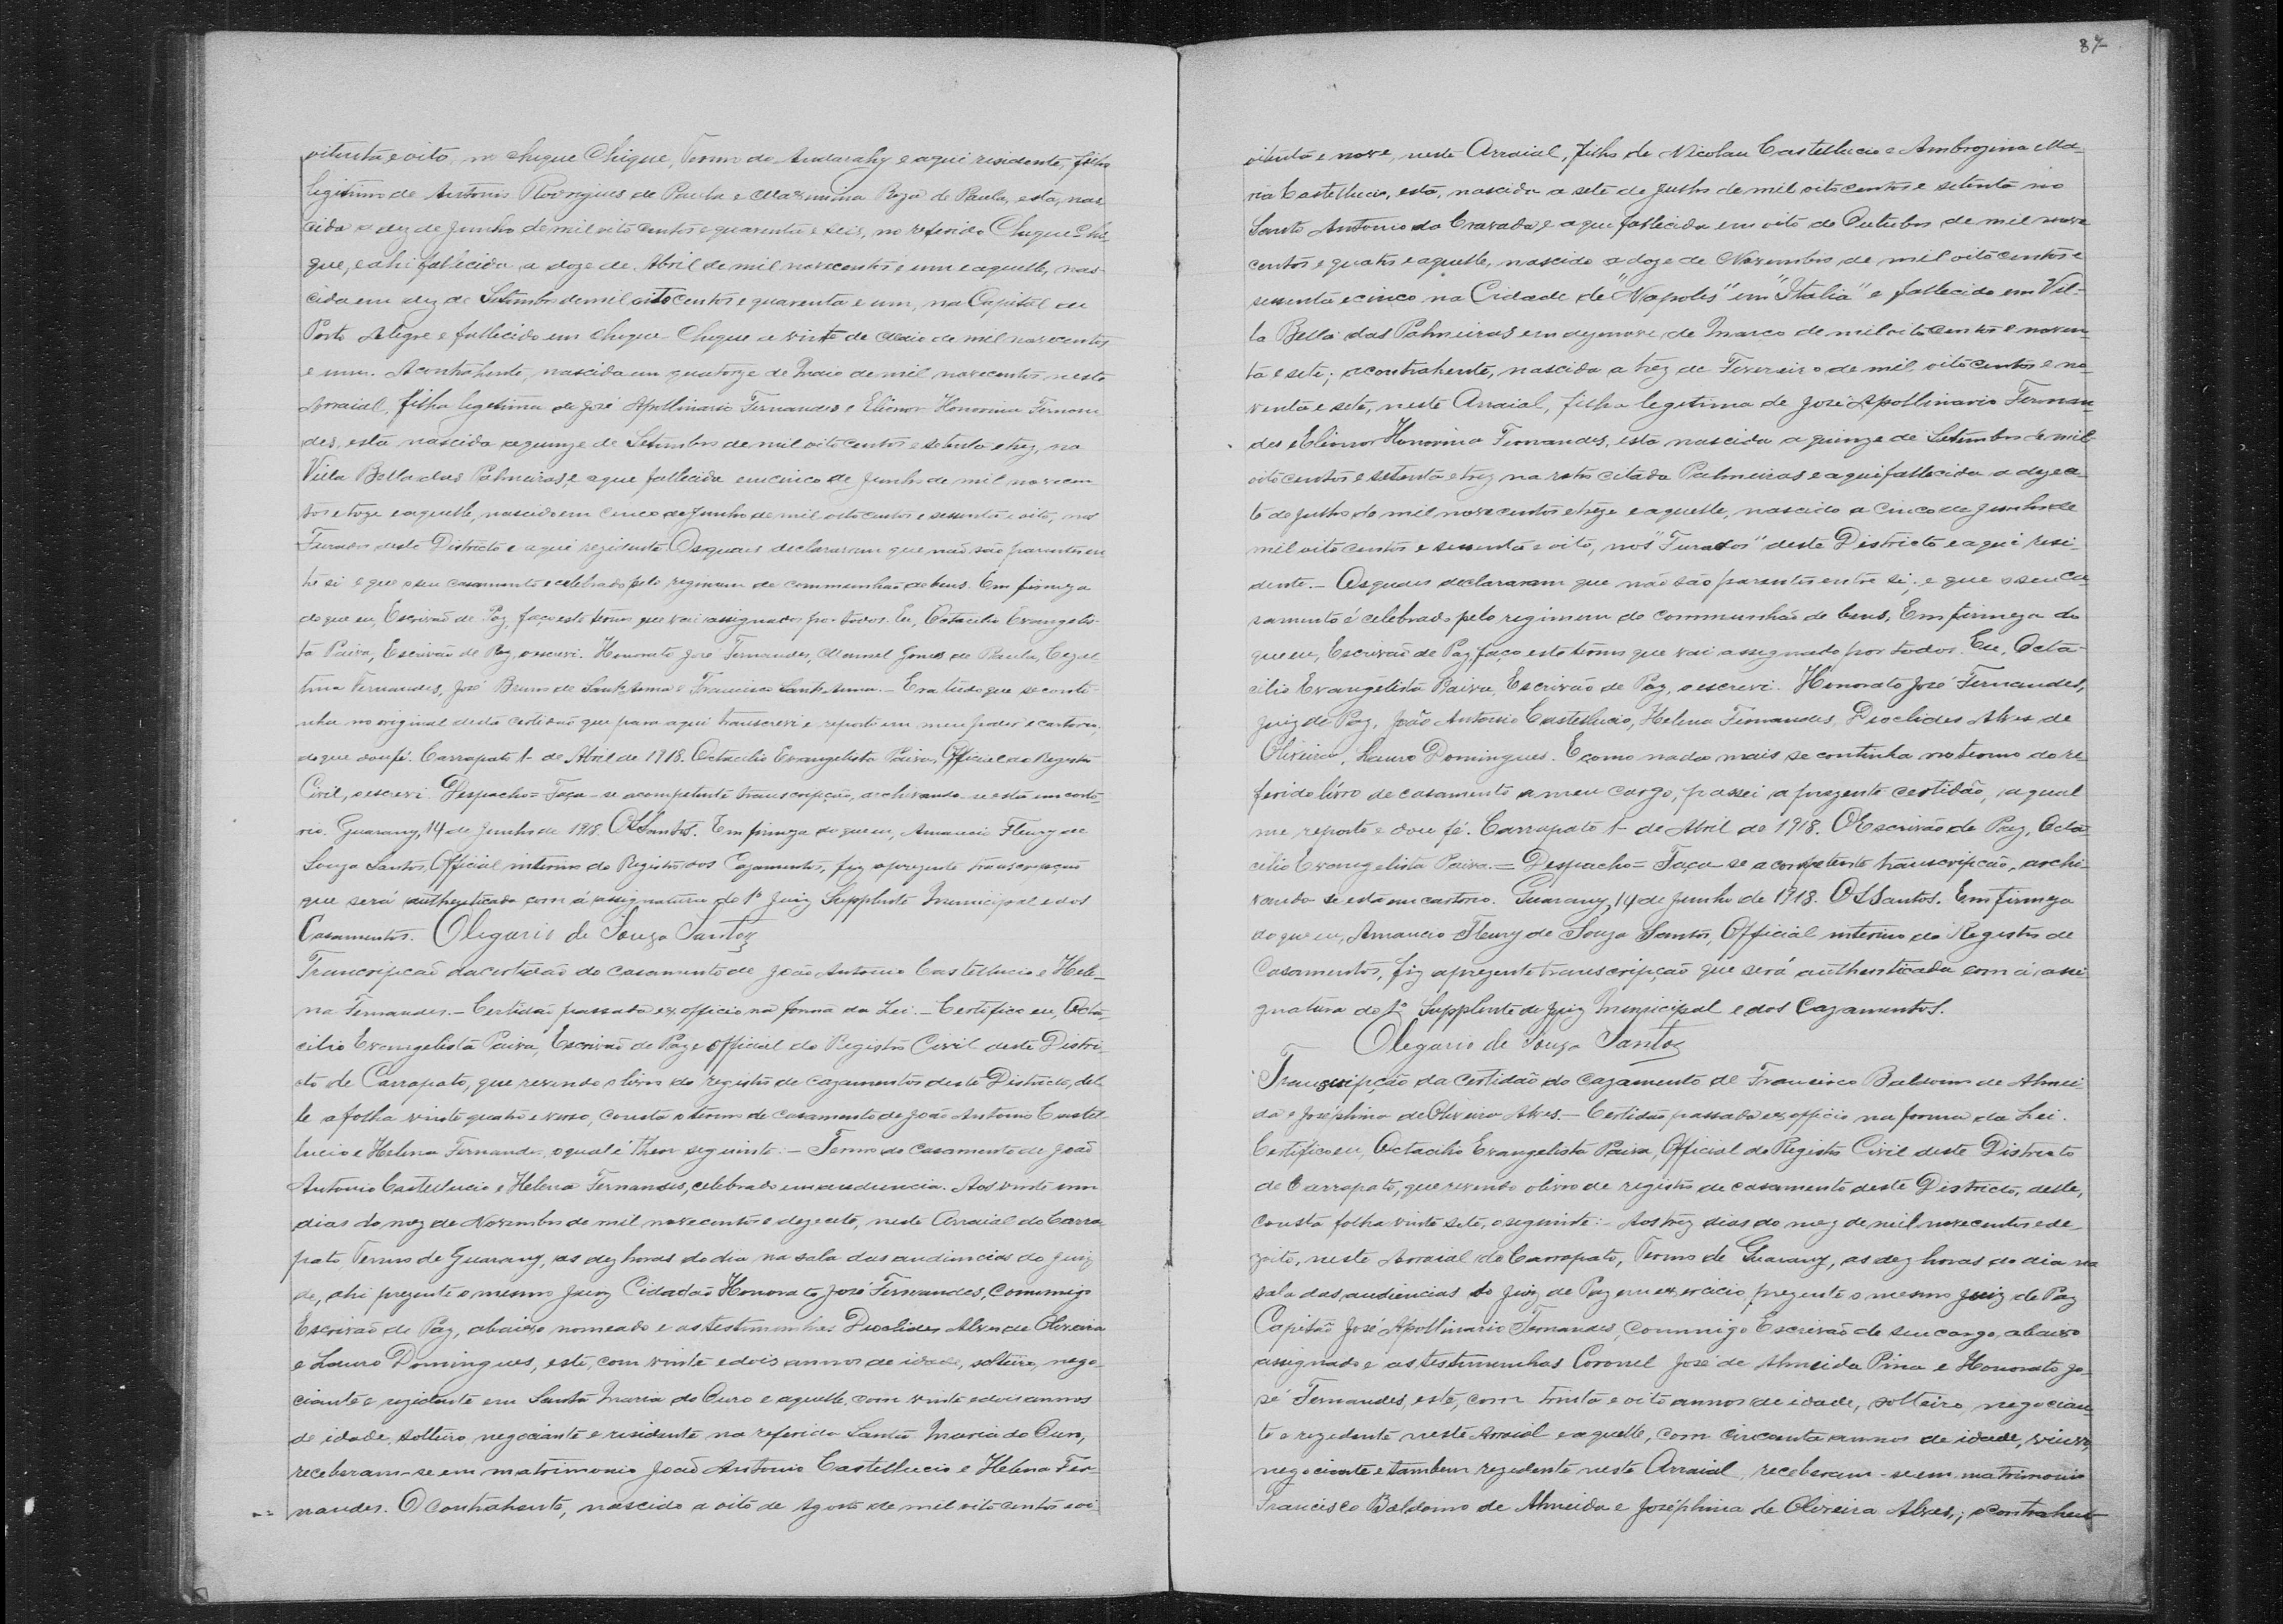 oitenta e oito, no Chique Chique, Termo do Andarahy e aqui residente, filho
legitimo de Antonio Rodrigues de Paula e Maxmina Roza de Paula, esta, nas
cida a dez de Junho de mil oito centos e quarenta e seis, no referido Chique Chi-
que, e ahi fallecida a doze de Abril de mil novecentos e um e aquelle, nas-
cido em dez de Setembro de mil oito centos e quarenta e um, na Capital de
Porto Alegre e fallecido em Chique Chique a vinte de Maio de mil novecentos
e um. A contrahente, nascida em quatorze de Maio de mil novecentos neste
Arraial, filha legitima de José Apollinario Fernandes e Elionor Honorina Fernan
des, esta nascida a quinze de Setembro de mil oito centos e setenta e trez, na
Villa Bella das Palmeiras, e aqui fallecida em cinco de Junho de mil novecen
tos e treze e aquelle, nascido em cinco de Junho de mil oito centos e sessenta e oito, nos
Furados deste Districto e aqui rezidente. Os quaes declararam que não são parentes en
tre si e que o seu casamento é celebrado pelo regimem de communhão de bens. Em firmeza
do que eu, Escrivão de Paz, faço este termo que vai assignado por todos. Eu, Octacilio Evangelis-
ta Paiva, Escrivão de Paz, o escrevi. Honorato José Fernandes, Manoel Gomes de Paula, Cezal
tina Fernandes, José Bruno de Sant'Anna e Francisco Sant'Anna. – Era tudo que se conti-
nha no original desta certidão que para aqui transcrevi e reporto em meu poder e cartorio,
do que dou fé. Carrapato 1- de Abril de 1918. Octacilio Evangelista Paiva, Official do Registro
Civil, o escrevi. Despacho = Faça-se a competente transcripção, archivando-se esta em carto-
rio. Guarany, 14 de Junho de 1918. OSSantos. Em firmeza do que eu, Amancio Fleury de
Souza Santos, Official interino do Registro dos Cazamentos, fiz a prezente transcripção
que será authenticada com a assignatura do 1º Juiz Supplente Municipal e dos
Casamentos. Olegario de Souza Santos
Transcripção da certidão do casamento de João Antonio Castellucio e Hele-
na Fernandes. – Certidão passada ex officio na forma da Lei. – Certifico eu, Octa-
cilio Evangelista Paiva, Escrivão de Paz e Official do Registro Civil deste Distri-
cto de Carrapato, que revendo o livro do registro de cazamentos deste Districto, del-
le a folha vinte quatro e verso, consta o termo de casamento de João Antonio Castel-
lucio e Helena Fernandes, o qual é theor seguinte: – Termo do Casamento de João
Antonio Castellucio e Helena Fernandes, celebrado em audiencia. Aos vinte um
dias do mez de Novembro de mil novecentos e dezesete, neste Arraial do Carra
pato Termo de Guarany, as dez horas do dia na sala das audiencias do Juiz
de, ahi prezente o mesmo Juiz Cidadão Honorato José Fernandes, commigo
Escrivão de Paz, abaixo nomeado e as testemunhas Dioclides Alves de Oliveira
e Lauro Domingues, este, com vinte e dois annos de idade, solteiro, nego-
ciante e rezidente em Santa Maria do Ouro e aquelle, com vinte e dois annos
de idade, solteiro, negociante e residente na referida Santa Maria do Ouro,
receberam-se em matrimonio João Antonio Castellucio e Helena Fer-
nandes. O contrahente, nascido a oito de Agosto de mil oito centos e oi-
87
oitenta e nove, neste Arraial, filho de Nicolau Castellucio e Ambrozina Ma-
ria Castellucio, esta, nascida a sete de Julho de mil oito centos e setenta no
Santo Antonio da Cravada, e aqui fallecida em oito de Outubro de mil nove
centos e quatro e aquelle, nascido a doze de Novembro de mil oito centos e
sessenta e cinco na Cidade de "Napoles" em "Italia" e fallecido em Vil-
la Bella das Palmeiras em dezenove de Março de mil oito centos e noven-
ta e sete; a contrahente, nascida a trez de Fevereiro de mil oito centos e no-
venta e sete, neste Arraial, filha legitima de José Apollinario Fernan-
des e Elionor Honorina Fernandes, esta nascida a quinze de Setembro de mil
oito centos e setenta e trez na retro citada Palmeiras e aqui fallecida a deze-
te de Julho de mil novecentos e treze e aquelle, nascido a cinco de Junho de
mil oito centos e sessenta e oito, nos "Furados" deste Districto e aqui resi-
dente. – Os quaes declararam que não são parentes entre si, e que o seu ca-
samento é celebrado pelo regimem de communhão de bens. Em firmeza do
que eu, Escrivão de Paz, faço este termo que vai assignado por todos. Eu, Octa-
cilio Evangelista Paiva, Escrivão de Paz, o escrevi. Honorato José Fernandes,
Juiz de Paz, João Antonio Castellucio, Helena Fernandes, Dioclides Alves de
Oliveira, Lauro Domingues. E como nada mais se continha no termo do re-
ferido livro de casamento a meu cargo, passei a prezente certidão, a qual
me reporto e dou fé. Carrapato 1- de Abril de 1918. O Escrivão de Paz, Octa-
cilio Evangelista Paiva. = Despacho = Faça-se a competente transcripção, archi-
vando-se esta em cartorio. Guarany, 14 de Junho de 1918. OSSantos. Em firmeza
do que eu, Amancio Fleury de Souza Santos, Official interino do Registro de
Casamentos, fiz a prezente transcripção que será authenticada com a assi-
gnatura do 1º Supplente de Juiz Municipal e dos Cazamentos.
Olegario de Souza Santos
Transcripção da Certidão do Cazamento de Francisco Baldoino de Almei-
da e Joséphina de Oliveira Alves. – Certidão passada ex officio na forma da Lei.
Certifico eu, Octacilio Evangelista Paiva, Official do Registro Civil deste Districto
de Carrapato, que revendo o livro de registro de casamento deste Districto, delle,
consta folha vinte sete, o seguinte: – Aos trez dias do mez de mil novecentos e de-
zoito, neste Arraial de Carrapato, Termo de Guarany, as dez horas do dia na
sala das audiencias do Juiz de Paz em exercicio, prezente o mesmo Juiz de Paz
Capitão José Apollinario Fernandes, commigo Escrivão de seu cargo, abaixo
assignado e as testemunhas Coronel José de Almeida Pina e Honorato Jo-
sé Fernandes, este, com trinta e oito annos de idade, solteiro, negocian-
te e rezidente neste Arraial e aquelle, com cincoenta annos de idade, viuvo,
negociante e tambem rezidente neste Arraial, receberam-se em matrimonio
Francisco Baldoino de Almeida e Joséphina de Oliveira Alves,; o contrahent